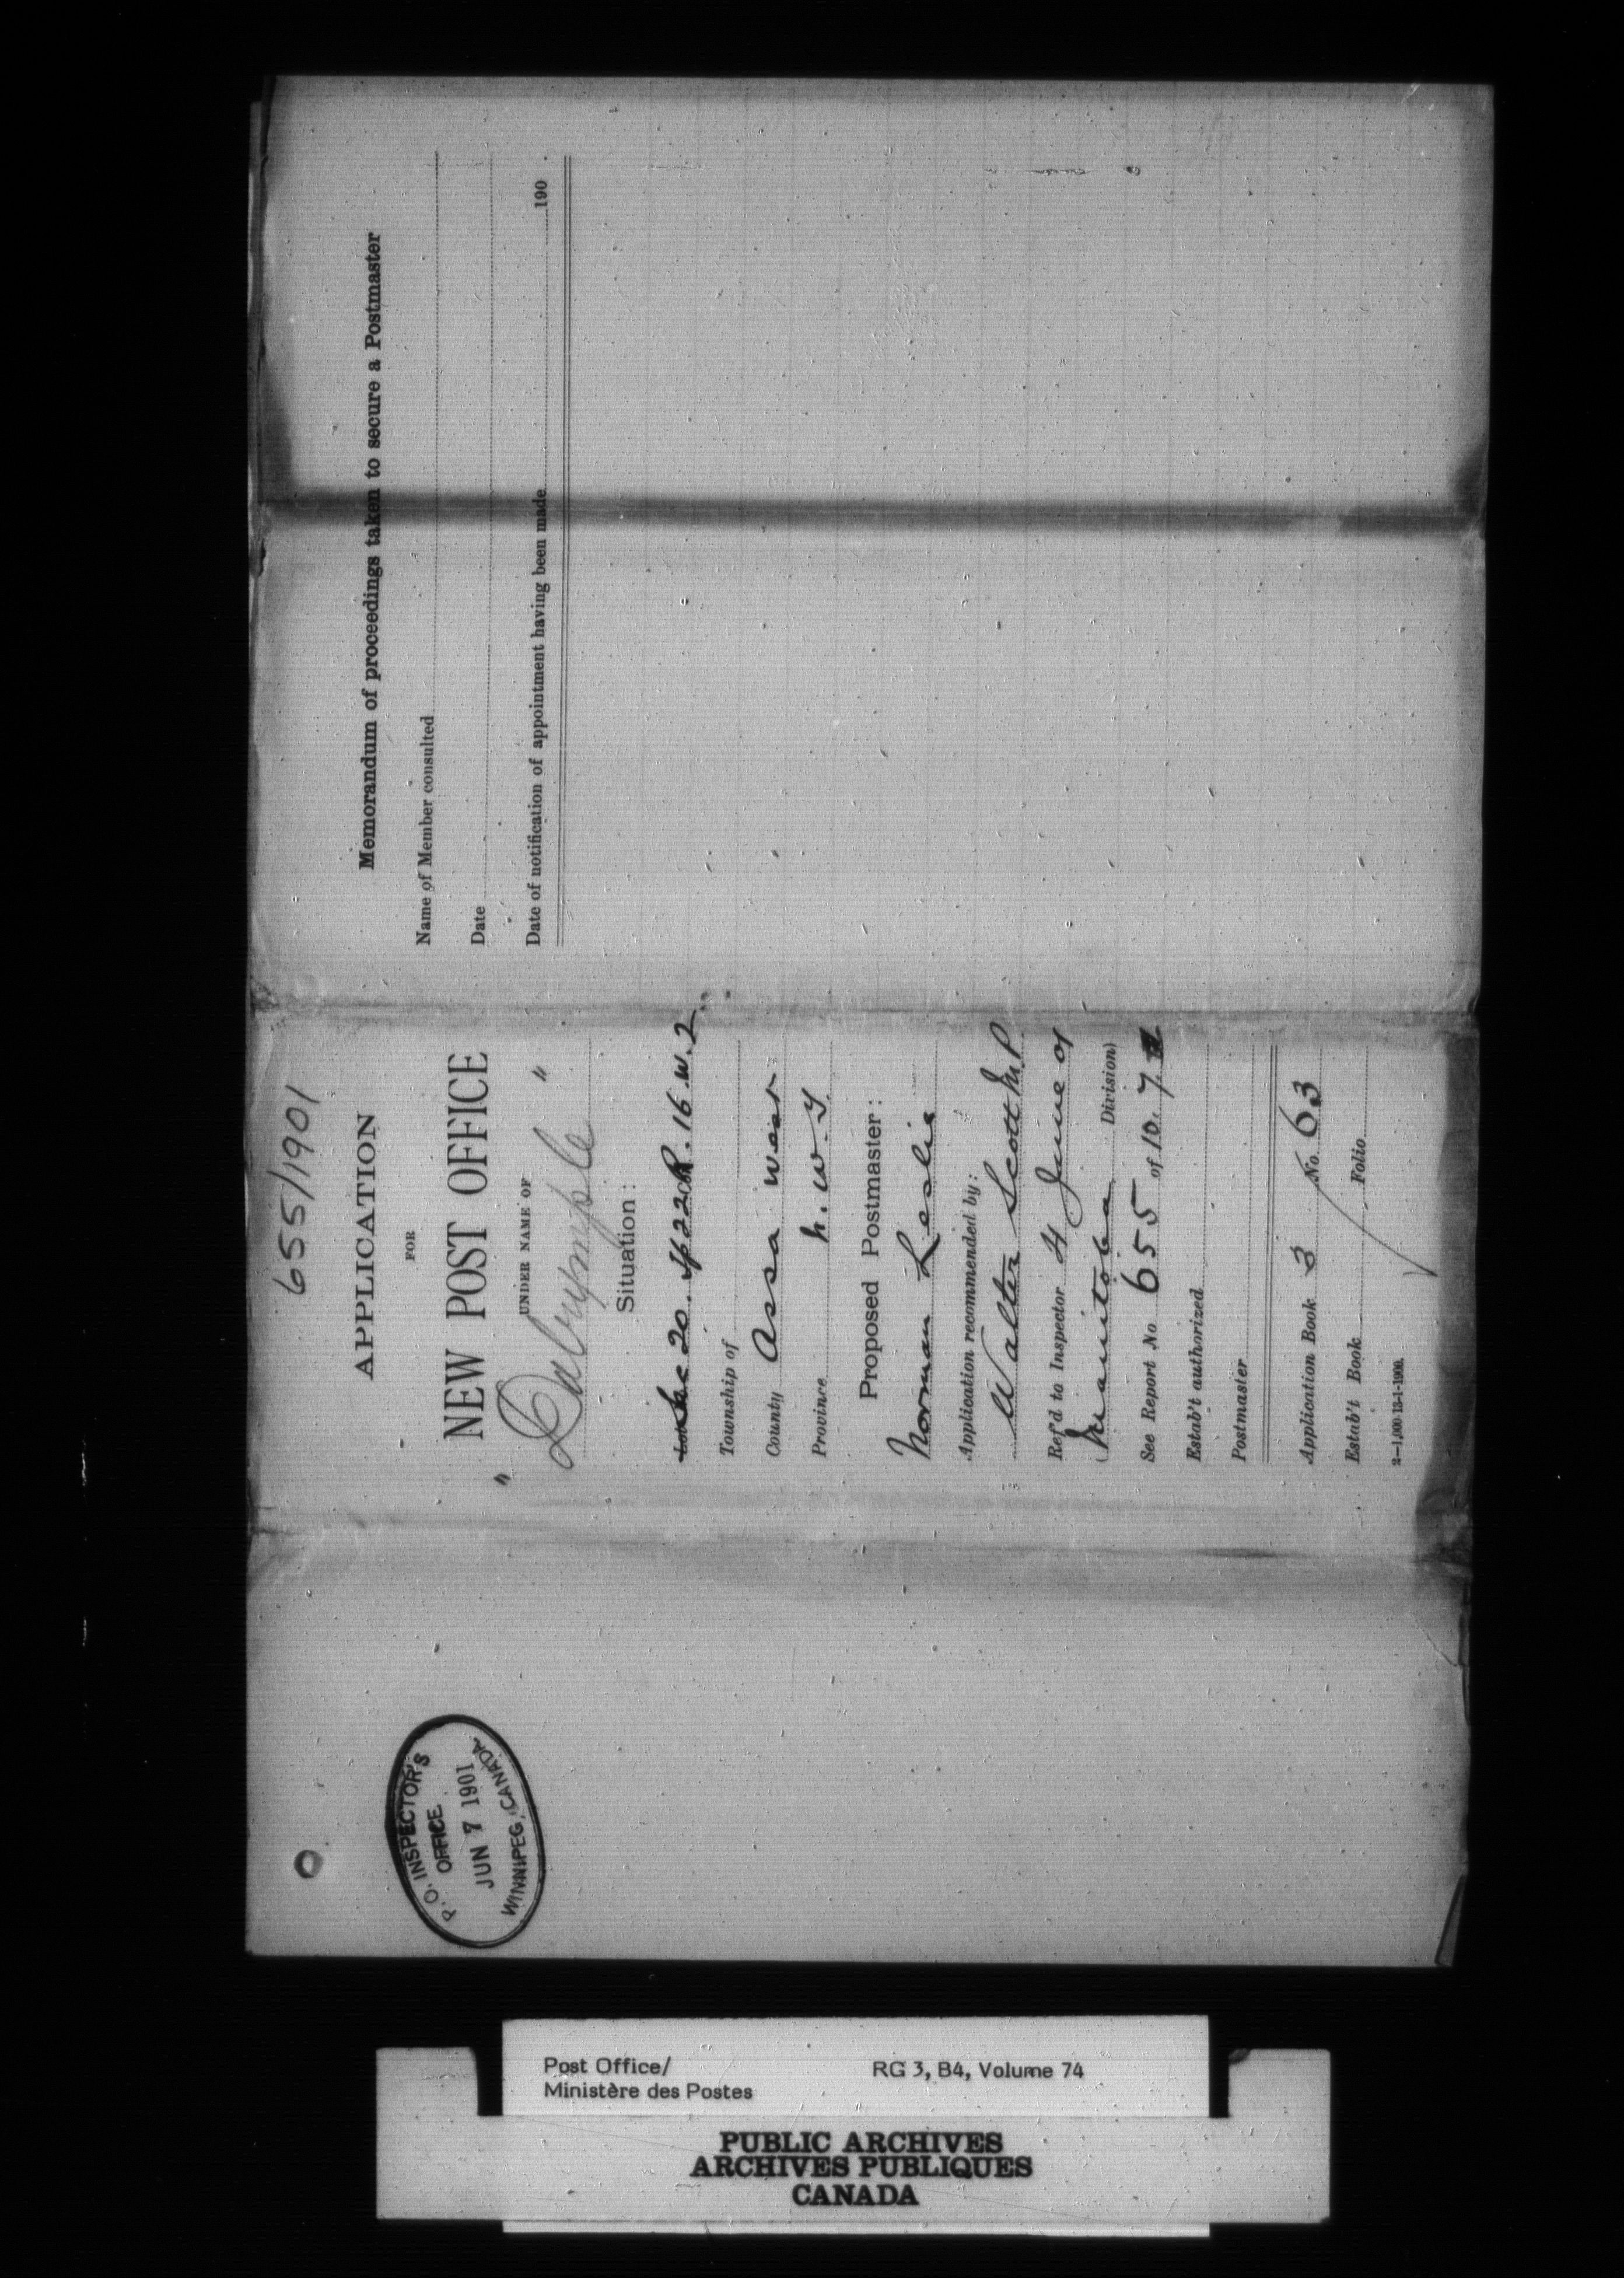 655/1901
APPLICATION
FOR
NEW POST OFFICE
UNDER NAME OF
" Dalrymple "
Situation:
Lot Sec 20. Tp 22 R. 16. W. 2
Township of
County Assa West
Province N. W. T.
Proposed Postmaster:
Norman Leslie
Application recommended by:
Walter Scott M.P.
Ref'd to Inspector 4 June 01
(Manitoba Division)
See Report No. 655 of 10. 7.
Estab't authorized
Postmaster
Application Book 3 No. 63
Estab't Book Folio
2—1,000 13-1-1900.
Memorandum of proceedings taken to secure a Postmaster
Name of Member consulted
Date
Date of notification of appointment having been made 190 .
P. O. INSPECTOR'S
OFFICE
JUN 7 1901
WINNIPEG, CANADA
Post Office/
Ministère des Postes
RG 3, B4, Volume 74
PUBLIC ARCHIVES
ARCHIVES PUBLIQUES
CANADA